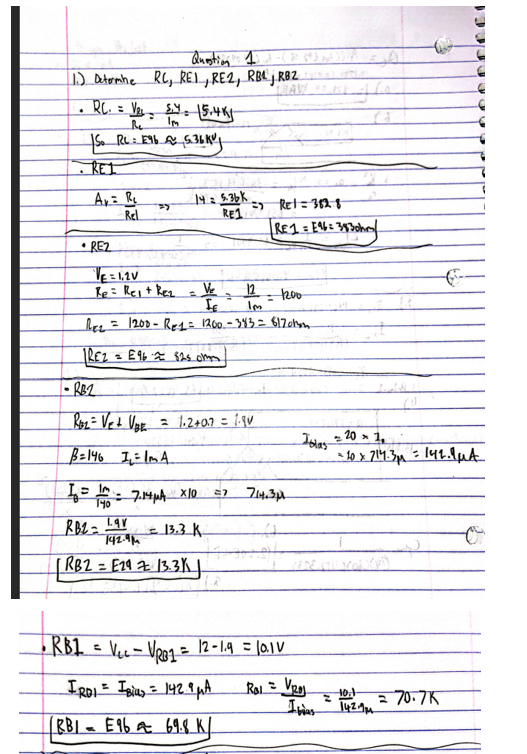 Question 1
1.) Determine RC, RE1, RE2, RB1, RB2
• RC = VRC/RC = 5.4/1m = 5.4K
So RC = E96 ≈ 5.36K
• RE1
Av = RC/RE1 => 14 = 5.36K/RE1 => RE1 = 382.8
RE1 = E96 = 383ohm
• RE2
VE = 1.2V
RE = RE1 + RE2 = VE/IE = 12/1m = 1200
RE2 = 1200 - RE1 = 1200 - 383 = 817ohm
RE2 = E96 ≈ 825 ohm
• RB2
RB2 = VE + VBE = 1.2+0.7 = 1.9V
Ibias = 20 x IB
= 10 x 714.3µ = 142.9µA
β=140 IC = 1mA
IB = 1m/140 = 7.14µA x10 => 714.3µ
RB2 = 1.9V/142.9µ = 13.3 K
RB2 = E29 ≈ 13.3K
• RB1 = VCC - VRB1 = 12-1.9 = 10.1V
IRB1 = Ibias = 142.9µA RB1 = VRB1/Ibias = 10.1/142.9µ = 70.7K
RB1 = E96 ≈ 69.8K